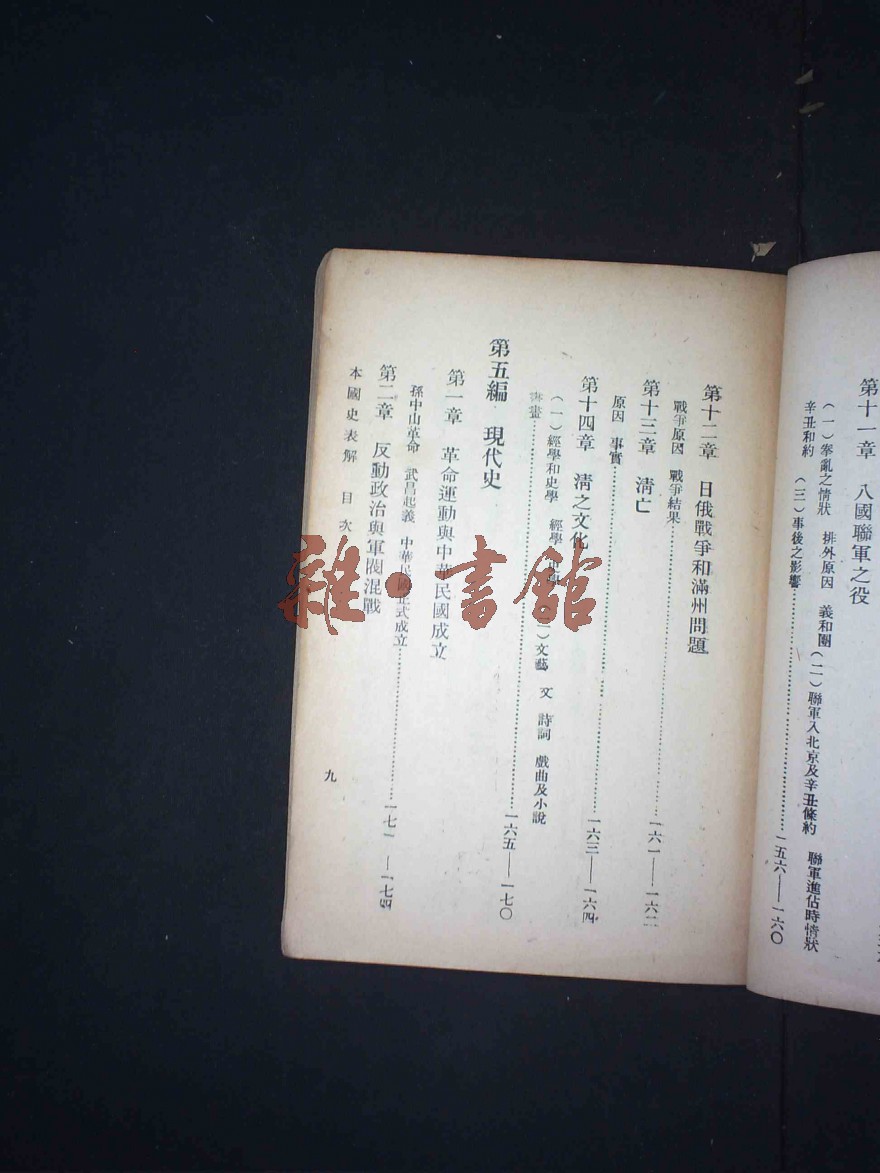 第十一章　八國聯軍之役
（一）拳亂之情狀　排外原因　義和團（二）聯軍入北京及辛丑條約　聯軍進佔時情狀
辛丑和約　（三）事後之影響……一五六——一六〇
第十二章　日俄戰爭和滿州問題
戰爭原因　戰爭結果……一六一——一六二
第十三章　清亡
原因　事實……一六三——一六四
第十四章　清之文化
（一）經學和史學　經學　（二）文藝　文　詩詞　戲曲及小說
書畫……一六五——一七〇
第五編　現代史
第一章　革命運動與中華民國成立
孫中山革命　武昌起義　中華民國正式成立……一七一——一七四
第二章　反動政治與軍閥混戰
本國史表解　目次
九
雜·書館